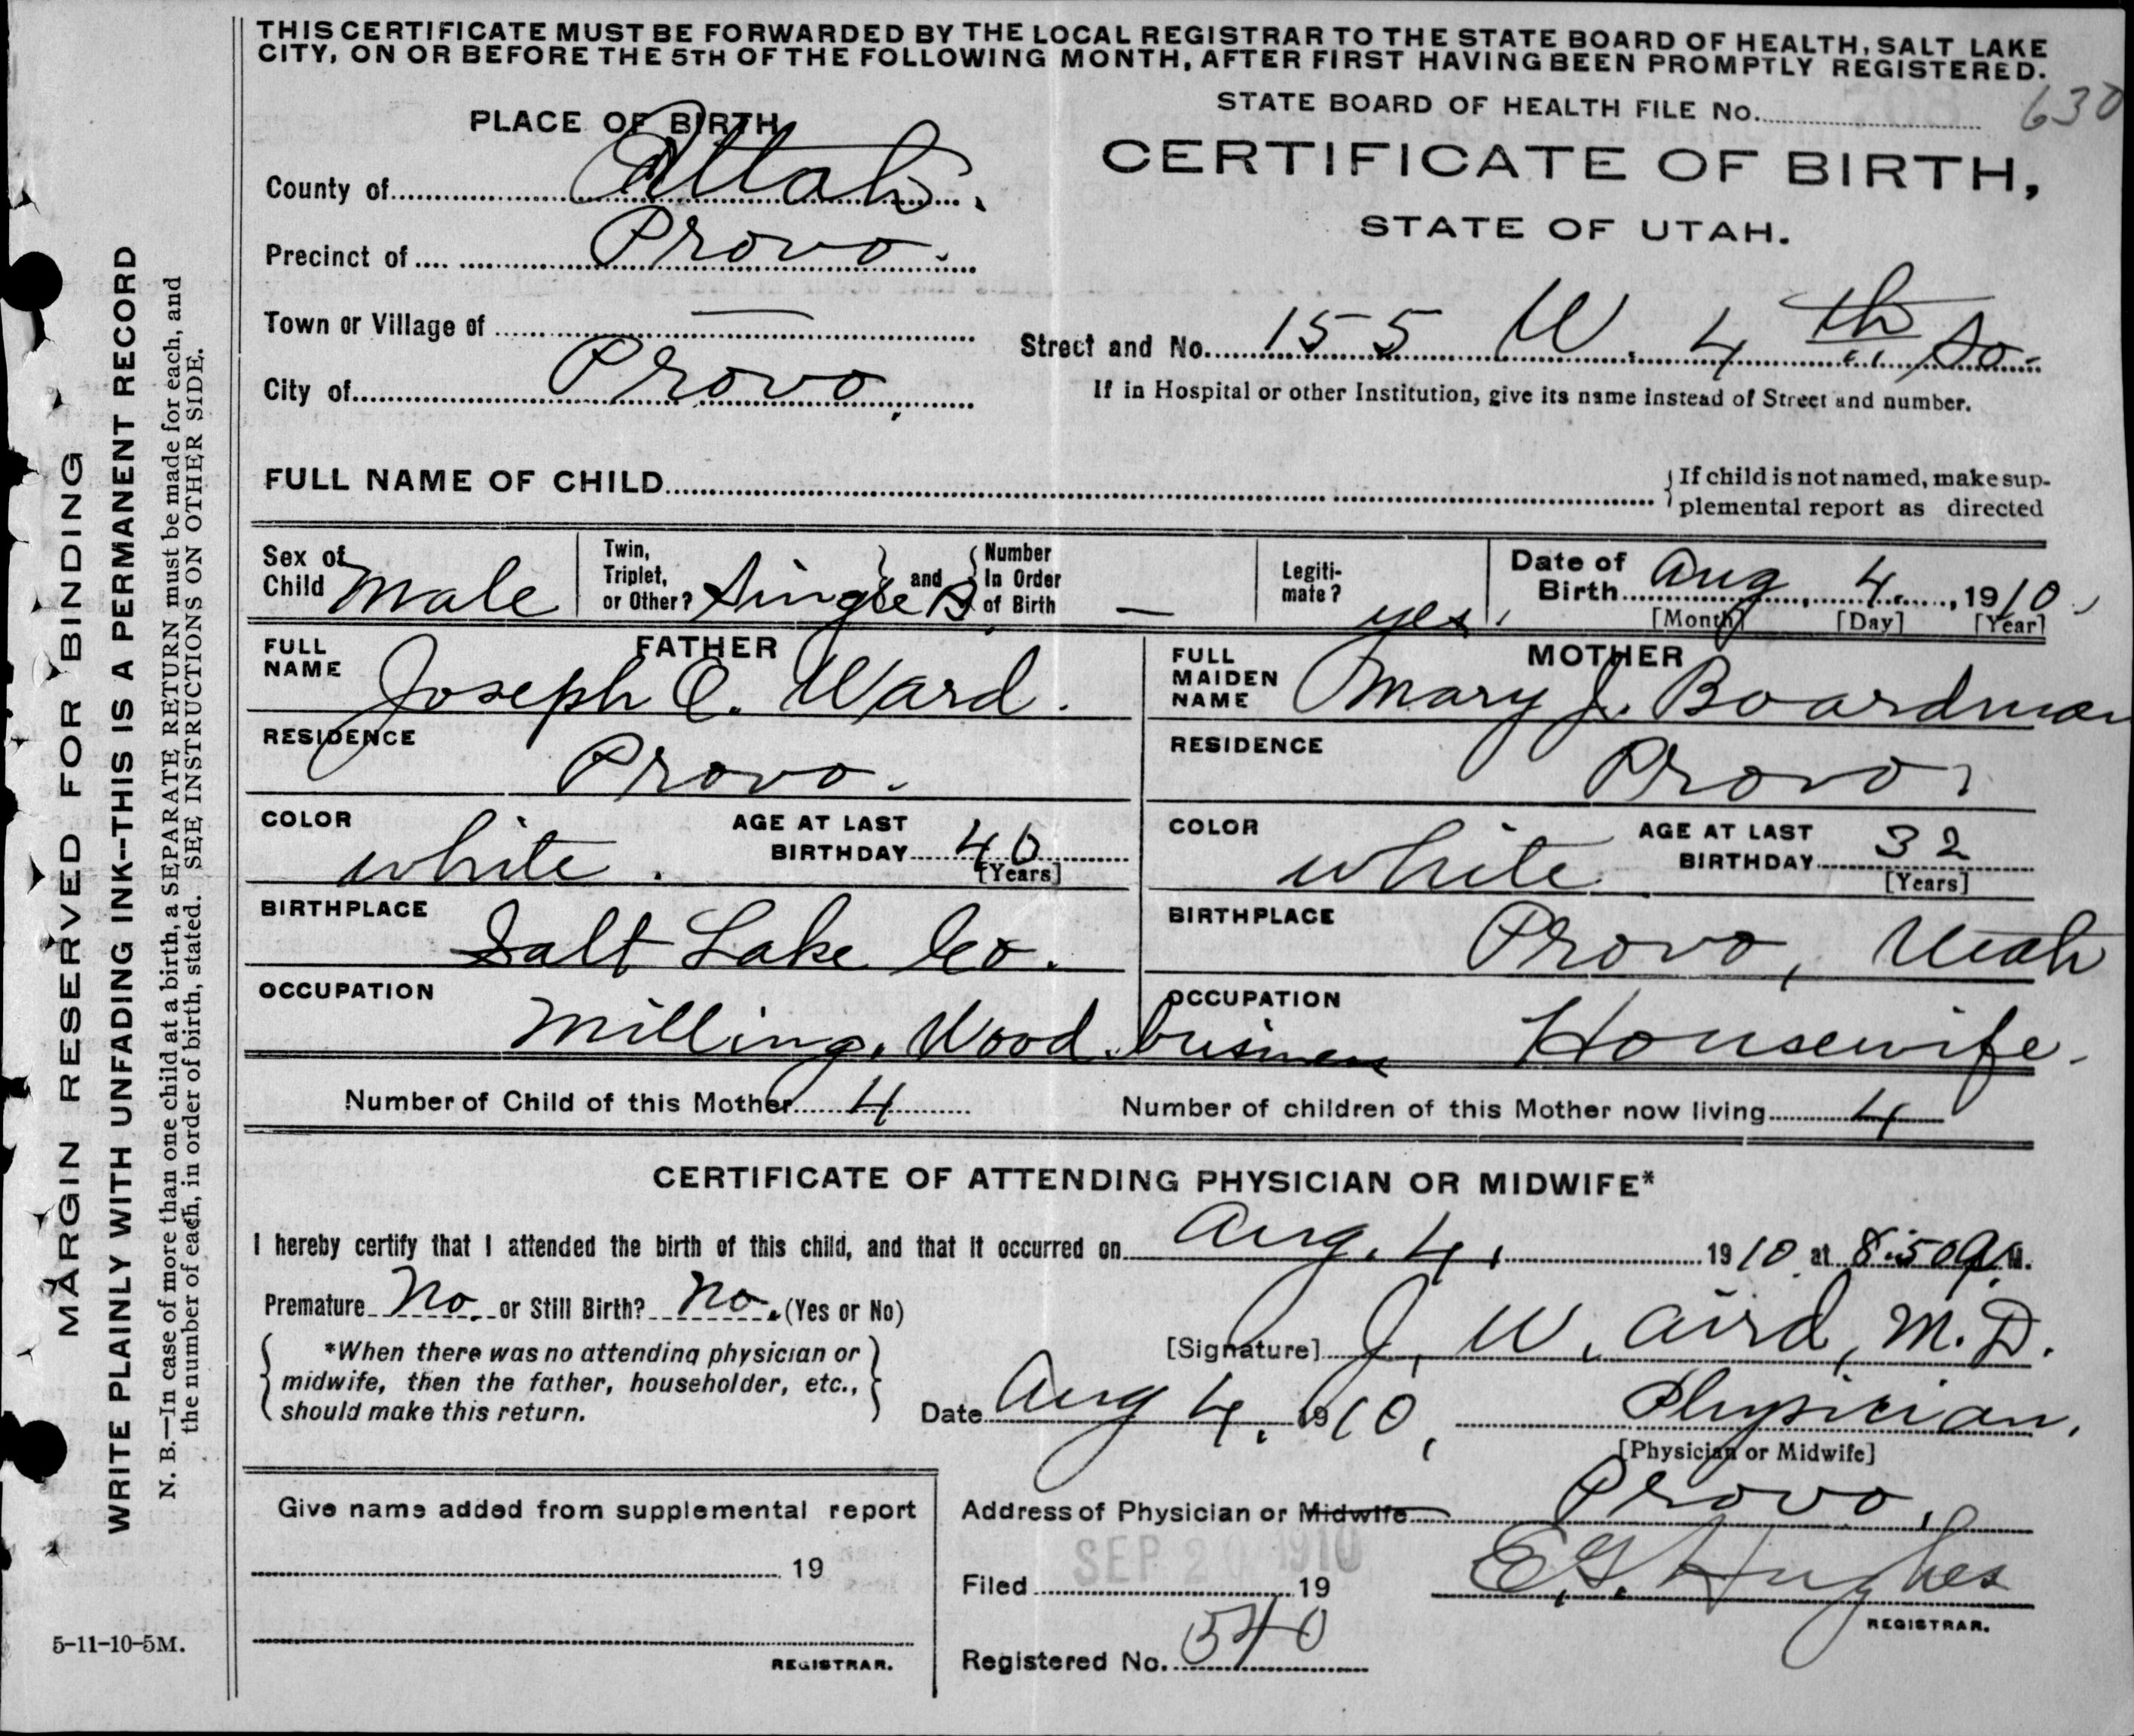 THIS CERTIFICATE MUST BE FORWARDED BY THE LOCAL REGISTRAR TO THE STATE BOARD OF HEALTH, SALT LAKE
CITY, ON OR BEFORE THE 5TH OF THE FOLLOWING MONTH, AFTER FIRST HAVING BEEN PROMPTLY REGISTERED.
STATE BOARD OF HEALTH FILE No. 630
PLACE OF BIRTH
CERTIFICATE OF BIRTH,
STATE OF UTAH.
County of Utah.
Precinct of Provo.
Town or Village of —
Street and No. 155 W. 4th So.
City of Provo.
If in Hospital or other Institution, give its name instead of Street and number.
FULL NAME OF CHILD
{If child is not named, make sup-
plemental report as directed
Sex of Child Male
Twin, Triplet, or Other? Single B. and Number In Order of Birth —
Legiti-mate? yes.
Date of Birth Aug. 4. 1910
[Month] [Day] [Year]
FATHER
FULL NAME Joseph O. Ward.
RESIDENCE Provo.
COLOR white.
AGE AT LAST BIRTHDAY 40
[Years]
BIRTHPLACE Salt Lake Co.
OCCUPATION Milling. Wood. business
MOTHER
FULL MAIDEN NAME Mary J. Boardman
RESIDENCE Provo
COLOR White
AGE AT LAST BIRTHDAY 32
[Years]
BIRTHPLACE Provo, Utah
OCCUPATION Housewife.
Number of Child of this Mother 4
Number of children of this Mother now living 4
CERTIFICATE OF ATTENDING PHYSICIAN OR MIDWIFE*
I hereby certify that I attended the birth of this child, and that it occurred on Aug. 4, 1910 at 8:50 A.M.
Premature No. or Still Birth? No. (Yes or No)
*When there was no attending physician or
midwife, then the father, householder, etc.,
should make this return.
[Signature] J. W. Aird, M.D.
Date Aug 4, 1910, Physician.
[Physician or Midwife]
Address of Physician or Midwife Provo.
Give name added from supplemental report
19
REGISTRAR.
Filed SEP 20 1910 19
E.G. Hughes
REGISTRAR.
Registered No. 540
MARGIN RESERVED FOR BINDING
WRITE PLAINLY WITH UNFADING INK--THIS IS A PERMANENT RECORD
N. B.—In case of more than one child at a birth, a SEPARATE RETURN must be made for each, and
the number of each, in order of birth, stated. SEE INSTRUCTIONS ON OTHER SIDE.
5-11-10-5M.